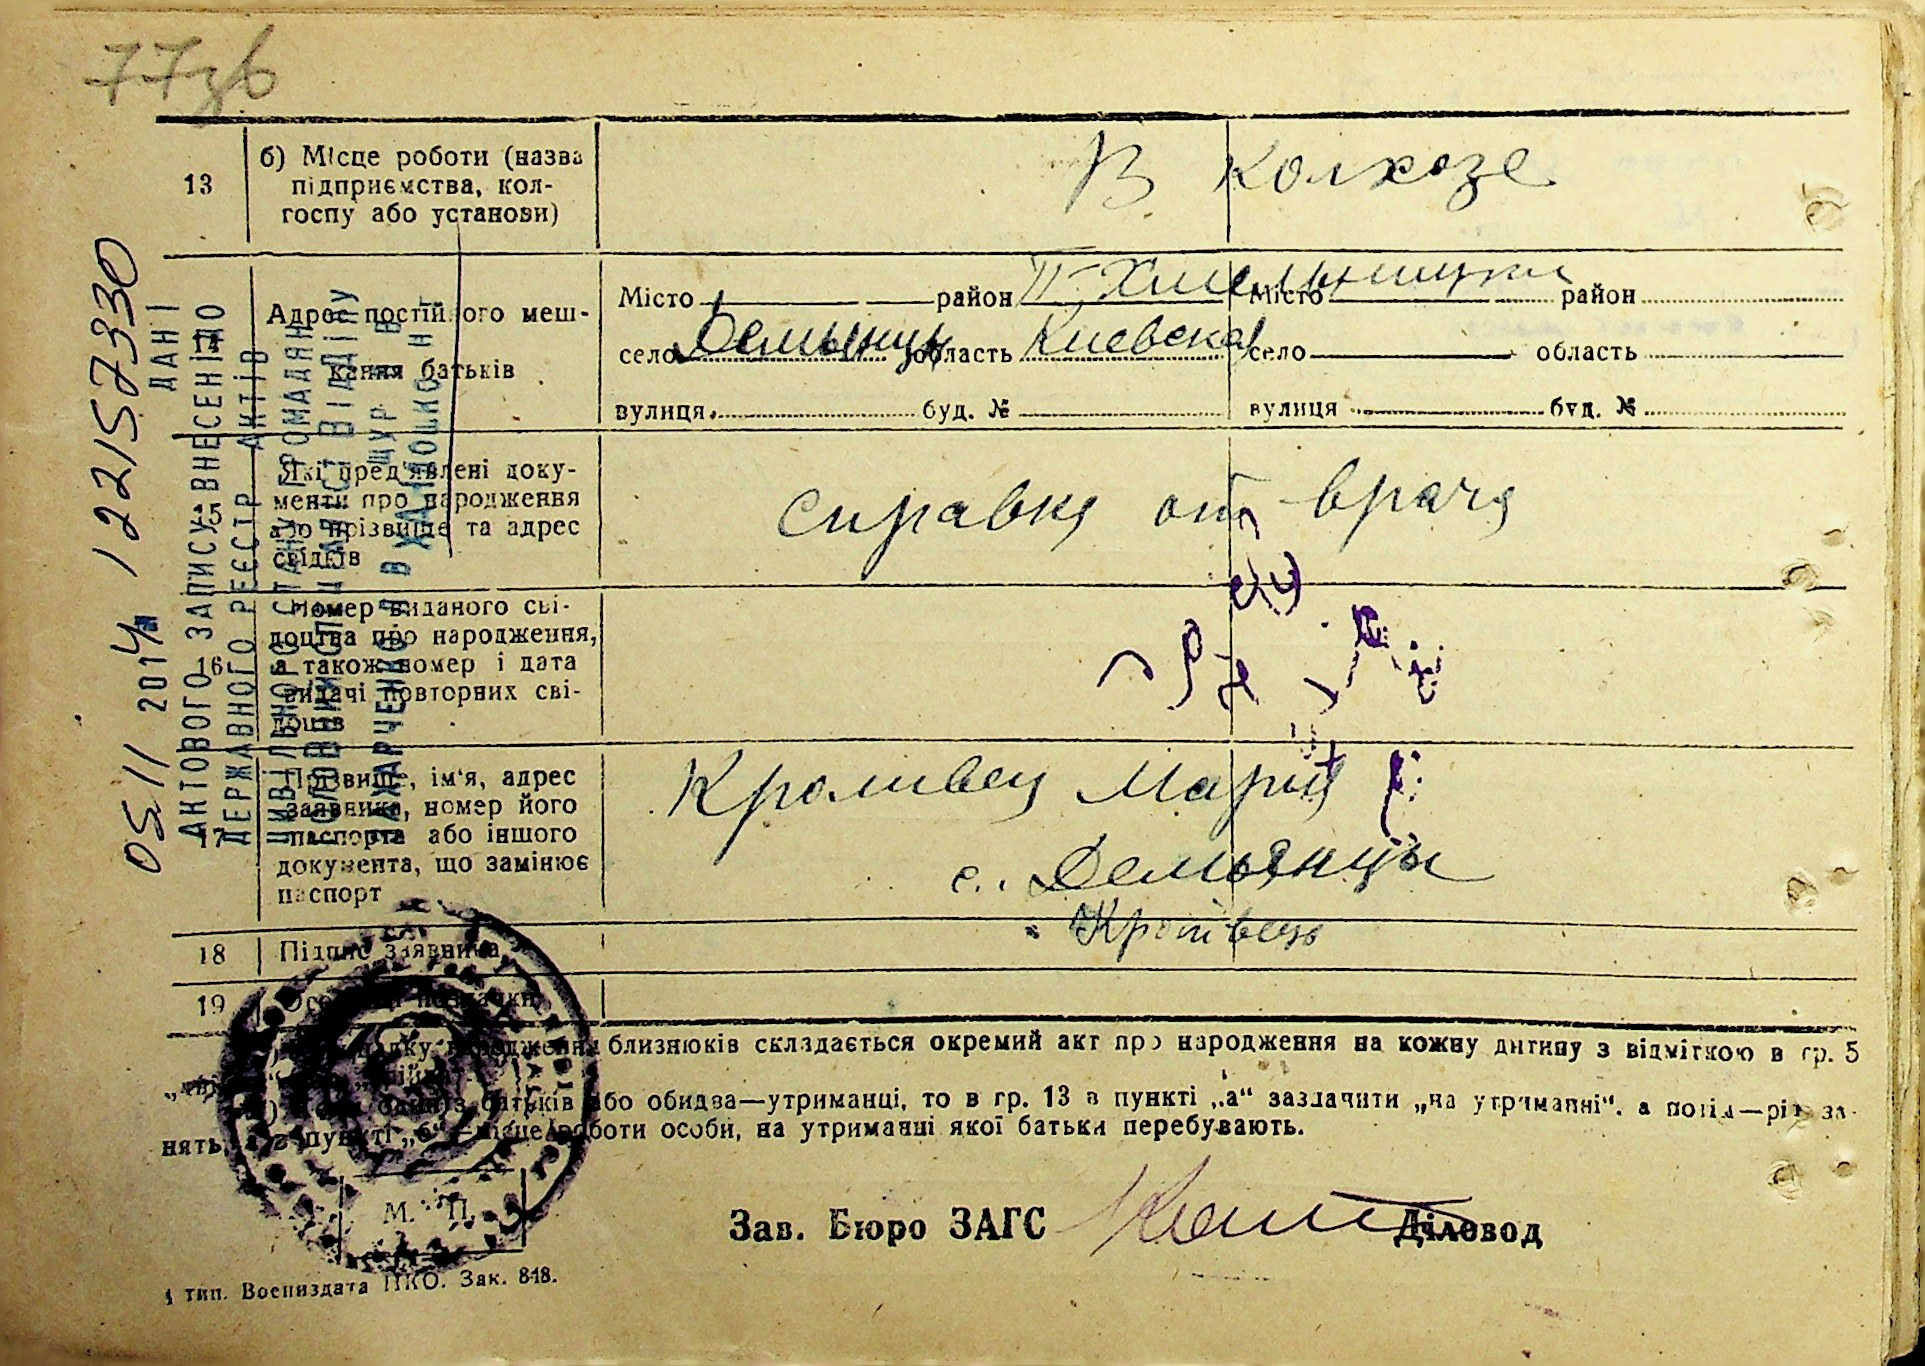 77зв
13
б) Місце роботи (назва
підприємства, кол-
госпу або установи)
В колхозе
14
Адрес постійного меш-
кання батьків
Місто район П-Хмельницки Місто район
село Демьянцы область Киевская село область
вулиця буд. № вулиця буд. №
15
Які пред'явлені доку-
менти про народження
або прізвище та адрес
свідків
справка от врача
16
Номер виданого сві-
доцтва про народження,
а також номер і дата
видачі повторних сві-
доцтв
17
Прізвище, ім'я, адрес
заявника, номер його
паспорта або іншого
документа, що замінює
паспорт
Кропивец Мария
с. Демьянцы
18
Підпис заявника
Кропівець
19
Особливі помітки
народження близнюків складається окремий акт про народження на кожну дитину з відміткою в гр. 5
батьків або обидва—утриманці, то в гр. 13 в пункті „а“ зазначити „на утриманні“, а
нять, а в пункті „б“—місце роботи особи, на утриманці якої батьки перебувають.
М. П.
Зав. Бюро ЗАГС
Діловод
1 тип. Воениздата НКО. Зак. 848.
05 11 2014 122157330
ДАНІ
АКТОВОГО ЗАПИСУ ВНЕСЕНІ ДО
ДЕРЖАВНОГО РЕЄСТР АКТІВ
ЦИВІЛЬНОГО СТАНУ ГРОМАДЯН
ГОЛОВНИЙ СПЕЦІАЛІСТ ВІДДІЛУ